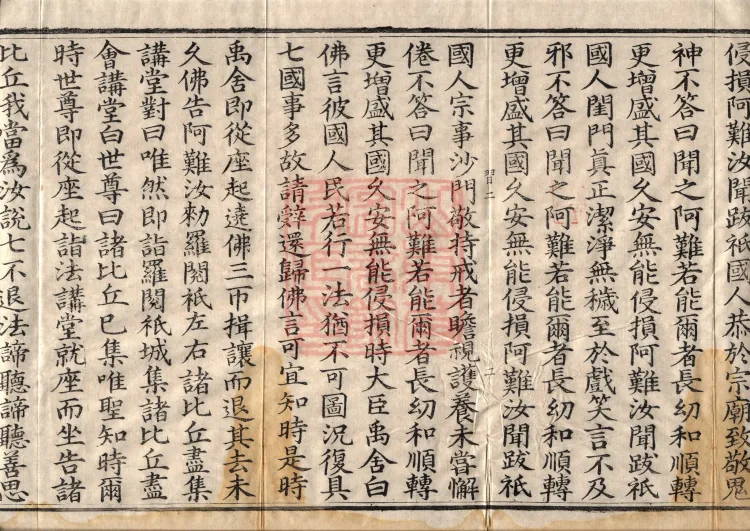 侵損阿難汝聞跋祇國人恭於宗廟致敬鬼
神不答曰聞之阿難若能爾者長幼和順轉
更增盛其國久安無能侵損阿難汝聞跋祇
國人閨門真正潔淨無穢至於戲笑言不及
邪不答曰聞之阿難若能爾者長幼和順轉
更增盛其國久安無能侵損阿難汝聞跋祇
習二
國人宗事沙門敬持戒者瞻視護養未嘗懈
倦不答曰聞之阿難若能爾者長幼和順轉
更增盛其國久安無能侵損時大臣禹舍白
佛言彼國人民若行一法猶不可圖況復具
七國事多故請辤還歸佛言可宜知時是時
禹舍即從座起遶佛三帀揖讓而退其去未
久佛告阿難汝勑羅閱祇左右諸比丘盡集
講堂對曰唯然即詣羅閱祇城集諸比丘盡
會講堂白世尊曰諸比丘已集唯聖知時爾
時世尊即從座起詣法講堂就座而坐告諸
比丘我當為汝說七不退法諦聽諦聽善思